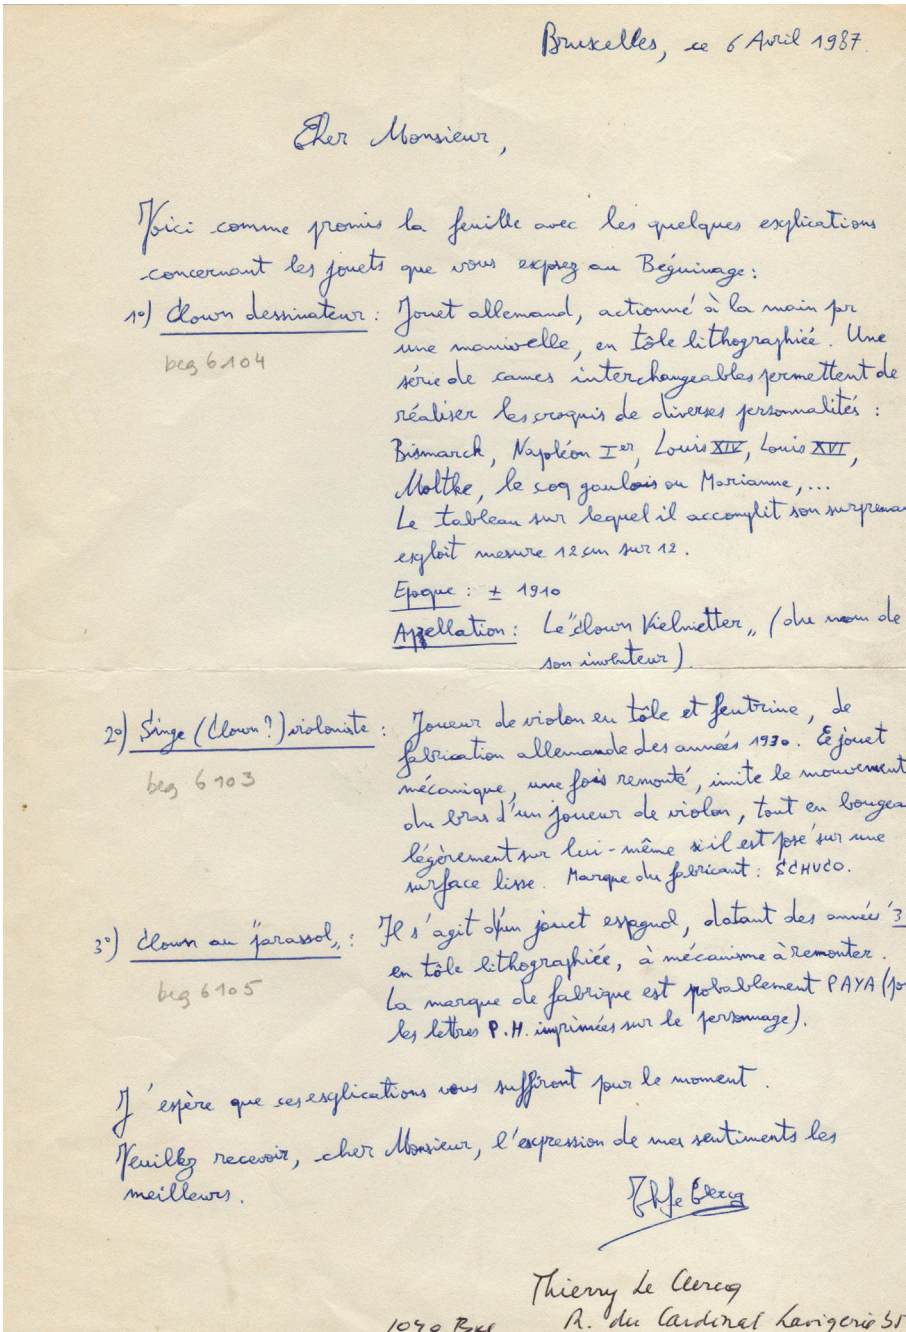 Bruxelles, ce 6 Avril 1987.
Cher Monsieur,
Voici comme promis la feuille avec les quelques explications
concernant les jouets que vous exposez au Béguinage :
1°) Clown dessinateur : Jouet allemand, actionné à la main par
une manivelle, en tôle lithographiée. Une
beg 6104
série de cames interchangeables permettent de
réaliser les croquis de diverses personnalités :
Bismarck, Napoléon Ier, Louis XIV, Louis XVI,
Moltke, le coq gaulois ou Marianne, ...
Le tableau sur lequel il accomplit son surprenan
exploit mesure 12 cm sur 12.
Epoque : ± 1910
Appellation : Le "clown Vielmetter" (du nom de
son inventeur).
2°) Singe (Clown ?) violoniste : Joueur de violon en tôle et feutrine, de
fabrication allemande des années 1930. Ce jouet
beg 6103
mécanique, une fois remonté, imite le mouvement
du bras d'un joueur de violon, tout en bougea
légèrement sur lui-même s'il est posé sur une
surface lisse. Marque du fabricant : SCHUCO.
3°) Clown au "parasol" : Il s'agit d'un jouet espagnol, datant des années '3
en tôle lithographiée, à mécanisme à remonter.
beg 6105
La marque de fabrique est probablement PAYA (po
les lettres P.H. imprimées sur le personnage).
J'espère que ces explications vous suffiront pour le moment.
Veuillez recevoir, cher Monsieur, l'expression de mes sentiments les
meilleurs.
Th Le Clercq
Thierry Le Clercq
R. du Cardinal Lavigerie 35
1040 Bxl